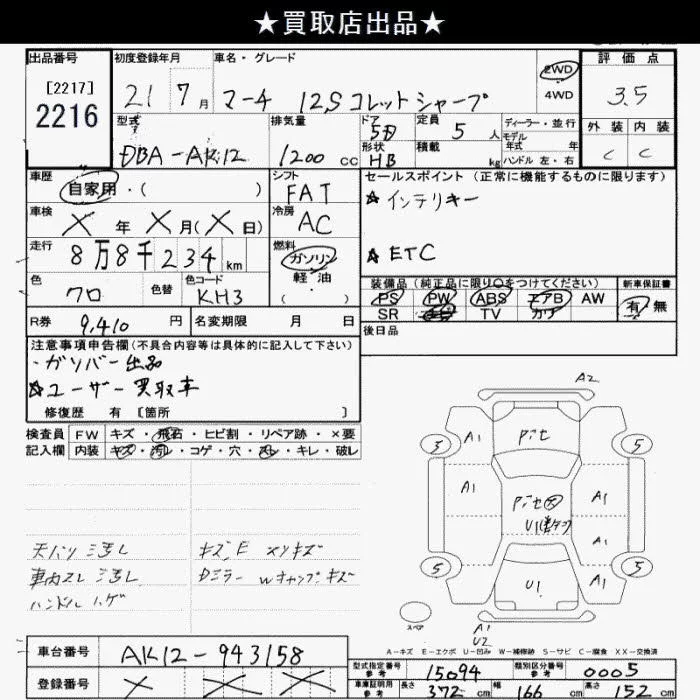 ★買取店出品★
出品番号
[2217]
2216
初度登録年月
21 7月
車名・グレード
マーチ 12S コレット シャープ
2WD
4WD
評価点
3.5
外装 内装
C C
型式
DBA-AK12
排気量
1200 CC
ドア
5D
形状
HB
定員
5人
積載
kg
ディーラー・並行
モデル
年式 年
ハンドル 左・右
車歴
自家用・( )
シフト
FAT
車検
X年X月(X日)
冷房
AC
走行
8万8千234km
燃料
ガソリン
軽・油
( )
色
クロ
色替
色コード
KH3
R券
9,410円
名変期限 月 日
セールスポイント (正常に機能するものに限ります)
☆インテリキー
☆ETC
装備品 (純正品に限り○をつけてください)
PS PW ABS エアB AW
SR TV カワ
新車保証書
有 無
後日品
注意事項申告欄(不具合内容等は具体的に記入して下さい)
・ガリバー出品
☆ユーザー買取車
修復歴 有 [箇所 ]
検査員 FW キズ・飛石・ヒビ割・リペア跡・×要
記入欄 内装 キズ・汚レ・コゲ・穴・スレ・キレ・破レ
天バリ汚レ
車内スレ汚レ
ハンドルハゲ
キズ,E メリキズ
Dミラー Wキャップキズ
A2
3 A1 Pit 5
A1 Pit A1
U1
A1
5 U1 A1 5
スペア
A1
U2
A-キズ E-エクボ U-凹み W-補修跡 S-サビ C-腐食 XX-交換済
車台番号
AK12-943158
登録番号
X X X
型式指定番号
参考
15094
類別区分番号
参考
0005
車庫証明用
参考
長さ 372cm 幅 166cm 高さ 152cm